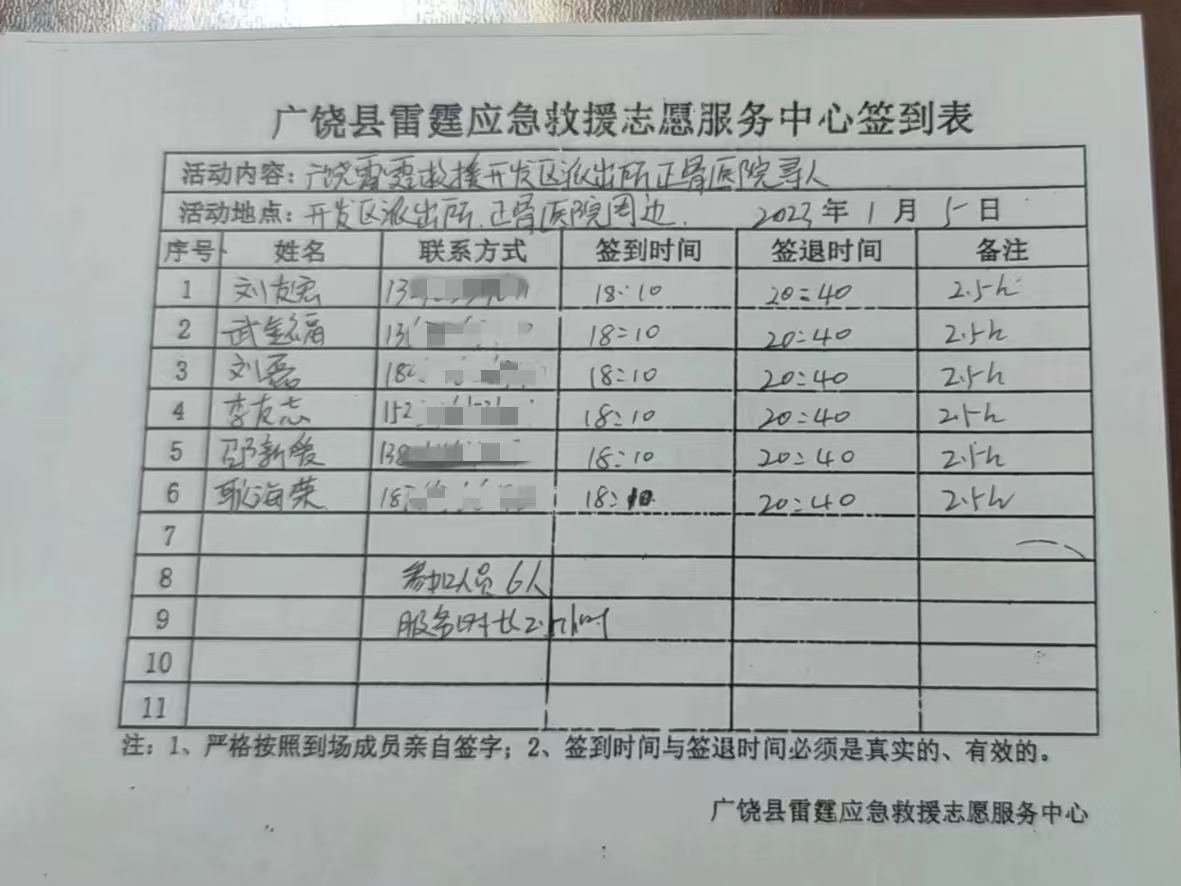 广饶县雷霆应急救援志愿服务中心签到表
活动内容：广饶雷霆救援开发区派出所正骨医院寻人
活动地点：开发区派出所.正骨医院周边. 2023年1月5日
序号 姓名 联系方式 签到时间 签退时间 备注
1 刘友宏 13 18:10 20:40 2.5h
2 武 福 13 18:10 20:40 2.5h
3 刘磊 18 18:10 20:40 2.5h
4 李友志 152 18:10 20:40 2.5h
5 邵新 138 18:10 20:40 2.5h
6 耿海荣 18 18:10 20:40 2.5h
7
8 参加人员6人
9 服务时长2.5小时
10
11
注：1、严格按照到场成员亲自签字；2、签到时间与签退时间必须是真实的、有效的。
广饶县雷霆应急救援志愿服务中心